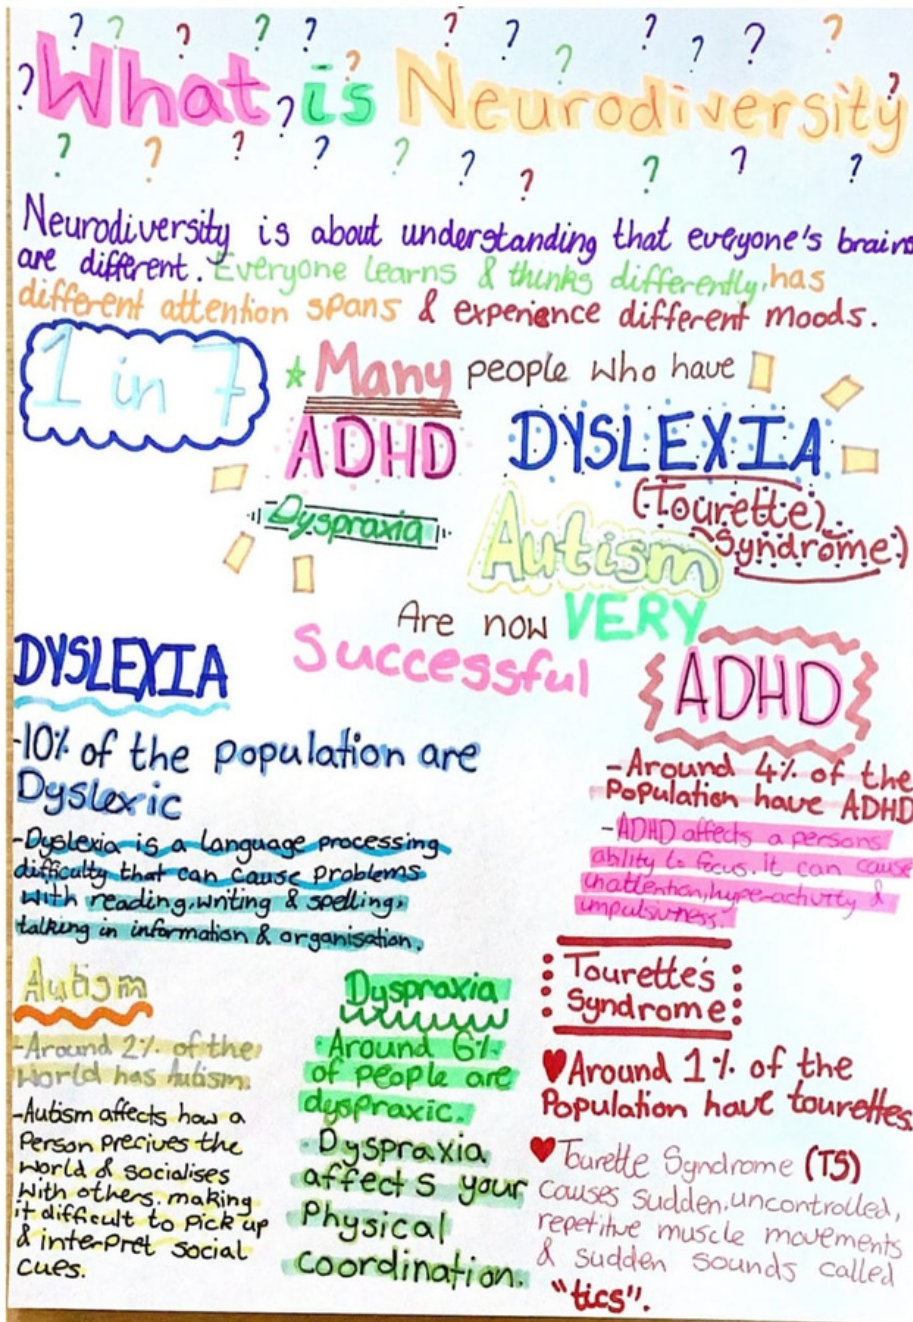 What is Neurodiversity
Neurodiversity is about understanding that everyone's brains
are different. Everyone learns & thinks differently, has
different attention spans & experience different moods.
1 in 7
Many people who have
ADHD DYSLEXIA
Dyspraxia (Tourette)
Autism Syndrome)
Are now VERY
Successful
DYSLEXIA
-10% of the population are
Dyslexic
-Dyslexia is a language processing
difficulty that can cause problems
with reading, writing & spelling,
talking in information & organisation.
ADHD
-Around 4% of the
Population have ADHD
-ADHD affects a persons
ability to focus. It can cause
inattention, hype-activity &
impulsivness.
Autism
-Around 2% of the
World has Autism.
-Autism affects how a
Person precives the
world & socialises
with others, making
it difficult to pick up
& interpret social
cues.
Dyspraxia
Around 6%
of people are
dyspraxic.
Dyspraxia
affects your
Physical
coordination.
Tourette's
Syndrome
Around 1% of the
Population have tourettes.
Tourette Syndrome (TS)
causes sudden, uncontrolled,
repetitive muscle movements
& sudden sounds called
"tics".